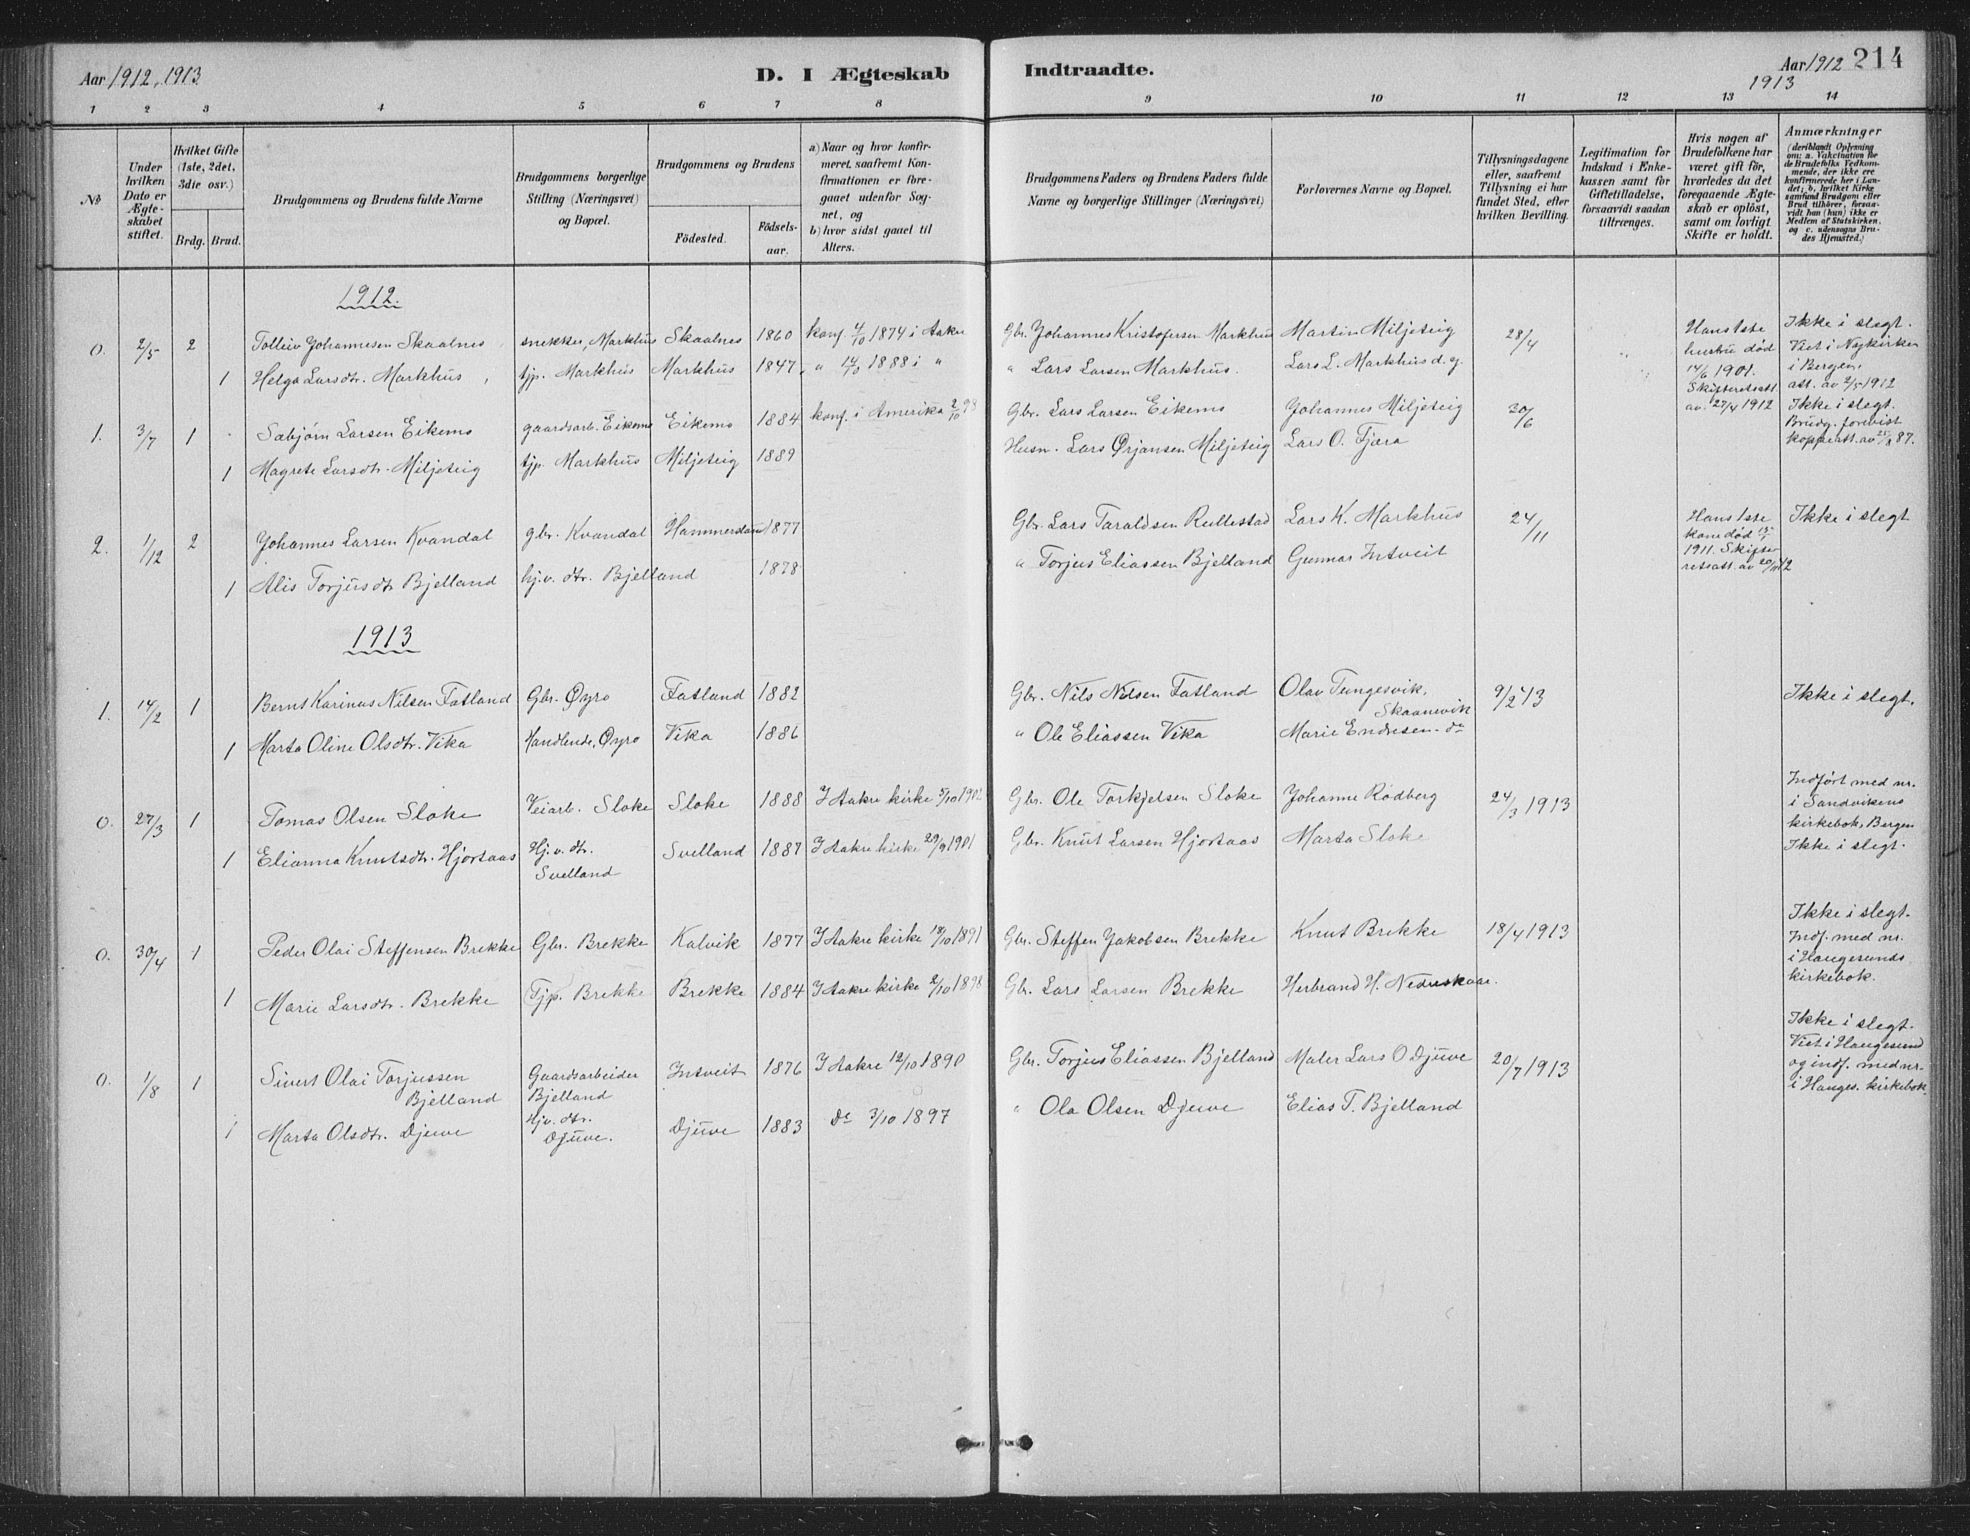 Aar 1912, 1913
D. I Ægteskab Indtraadte.
Aar 1912 214
1913
1 2 3 4 5 6 7 8 9 10 11 12 13 14
No
Under hvilken Dato er Ægteskabet stiftet.
Hvilket Gifte (1ste, 2det, 3die osv.)
Brdg. Brud.
Brudgommens og Brudens fulde Navne
Brudgommens borgerlige Stilling (Næringsvei) og Bopæl.
Brudgommens og Brudens
Födested. Födselsaar.
a) Naar og hvor konfirmeret, saafremt Konfirmationen er foregaaet udenfor Sognet, og
b) hvor sidst gaaet til Alters.
Brudgommens Faders og Brudens Faders fulde Navne og borgerlige Stillinger (Næringsvei)
Forlovernes Navne og Bopæl.
Tillysningsdagene eller, saafremt Tillysning ei har fundet Sted, efter hvilken Bevilling.
Legitimation for Indskud i Enkekassen samt for Giftetilladelse, forsaavidt saadan tiltrænges.
Hvis nogen af Brudefolkene har været gift för, hvorledes da det foregaaende Ægteskab er oplöst, samt om lovligt Skifte er holdt.
Anmærkninger (deriblandt Oplysning om: a. Vakcination for de Brudefolks Vedkommende, der ikke ere konfirmerede her i Landet; b. hvilket Kirkesamfund Brudgom eller Brud tilhörer, forsaavidt han (hun) ikke er Medlem af Statskirken, og c. udensogns Brudes Hjemsted.)
1912.
0. 2/5 2 Tolleiv Johannesen Skaalnes snekker, Markhus Skaalnes 1860 konf. 4/10 1874 i Aakre Gbr. Johannes Kristofersen Markhus Martin Miljeteig 28/4 Hans 1ste hustru død 14/6 1901. Skifteretsatt. av 27/4 1912 Ikke i slegt. Viet i Nykirken i Bergen, att. av 2/5 1912
1 Helga Larsdtr. Markhus tjp. Markhus Markhus 1847 " " 1888 i " " Lars Larsen Markhus. Lars L. Markhus d. y.
1. 3/7 1 Sæbjørn Larsen Eikemo gaardsarb. Eikemo Eikemo 1884 konf. i Amerika 2/10 98 Gbr. Lars Larsen Eikemo Johannes Miljeteig 30/6 Ikke i slegt. Brudg. forevist koppeatt. av 87.
1 Magrete Larsdtr. Miljeteig tjp. Markhus Miljeteig 1889 Husm. Lars Ørjansen Miljeteig Lars O. Fjæra
2. 1/12 2 Johannes Larsen Kvandal gbr. Kvandal 1877 Gbr. Lars Taraldsen Rullestad Lars K. Markhus 24/11 Hans 1ste kone død 1911. Skifteretsatt. av Ikke i slegt
1 Alis Torjusdtr Bjelland hj.v. dtr. Bjelland 1878 " Torjus Eliassen Bjelland Gunnar Intveit
1913
1. 14/2 1 Bernt Karinus Nilsen Fatland Gbr. Øyro Fatland 1882 Gbr. Nils Nilsen Fatland Olav Tungesvik, Skaanevik 9/2 13 Ikke i slegt.
1 Marta Oline Olsdtr. Vika Handlende, Øyro Vika 1886 " Ole Eliassen Vika Marie Endresen do
0. 27/3 1 Tomas Olsen Sloke Veiarb. Sloke Sloke 1888 I Aakre kirke 5/10 1902 Gbr. Ole Torkjelsen Sloke Johanne Rödberg 24/3 1913 Indført med nr. i Sandvikens kirkebok, Bergen Ikke i slegt.
1 Elianna Knutsdtr. Hjortaas Hj.v. dtr. Svelland Svelland 1887 I Aakre kirke 29/9 1901 Gbr. Knut Larsen Hjortaas Marta Sloke
0. 30/4 1 Peder Olai Steffensen Brekke Gbr. Brekke Kalvik 1877 I Aakre kirke 18/10 1891 Gbr. Steffen Jakobsen Brekke Knut Brekke 18/4 1913 Ikke i slegt. Indf. med nr. i Haugesunds kirkebok.
1 Marie Larsdtr. Brekke Tjp. Brekke Brekke 1884 I Aakre kirke 2/10 1898 Gbr. Lars Larsen Brekke Herbrand H. Nedreskaar.
0. 1/8 1 Sivert Olai Torjussen Bjelland Gaardsarbeider Bjelland Intveit 1876 I Aakre 12/10 1890 Gbr. Torjus Eliassen Bjelland Maler Lars O Djuve 20/7 1913 Ikke i slegt. Viet i Haugesund og indf. med nr. i Hauges. kirkebok.
1 Marta Olsdtr. Djuve Hjv. dtr. Djuve. Djuve 1883 Do 3/10 1897 " Ola Olsen Djuve Elias T. Bjelland